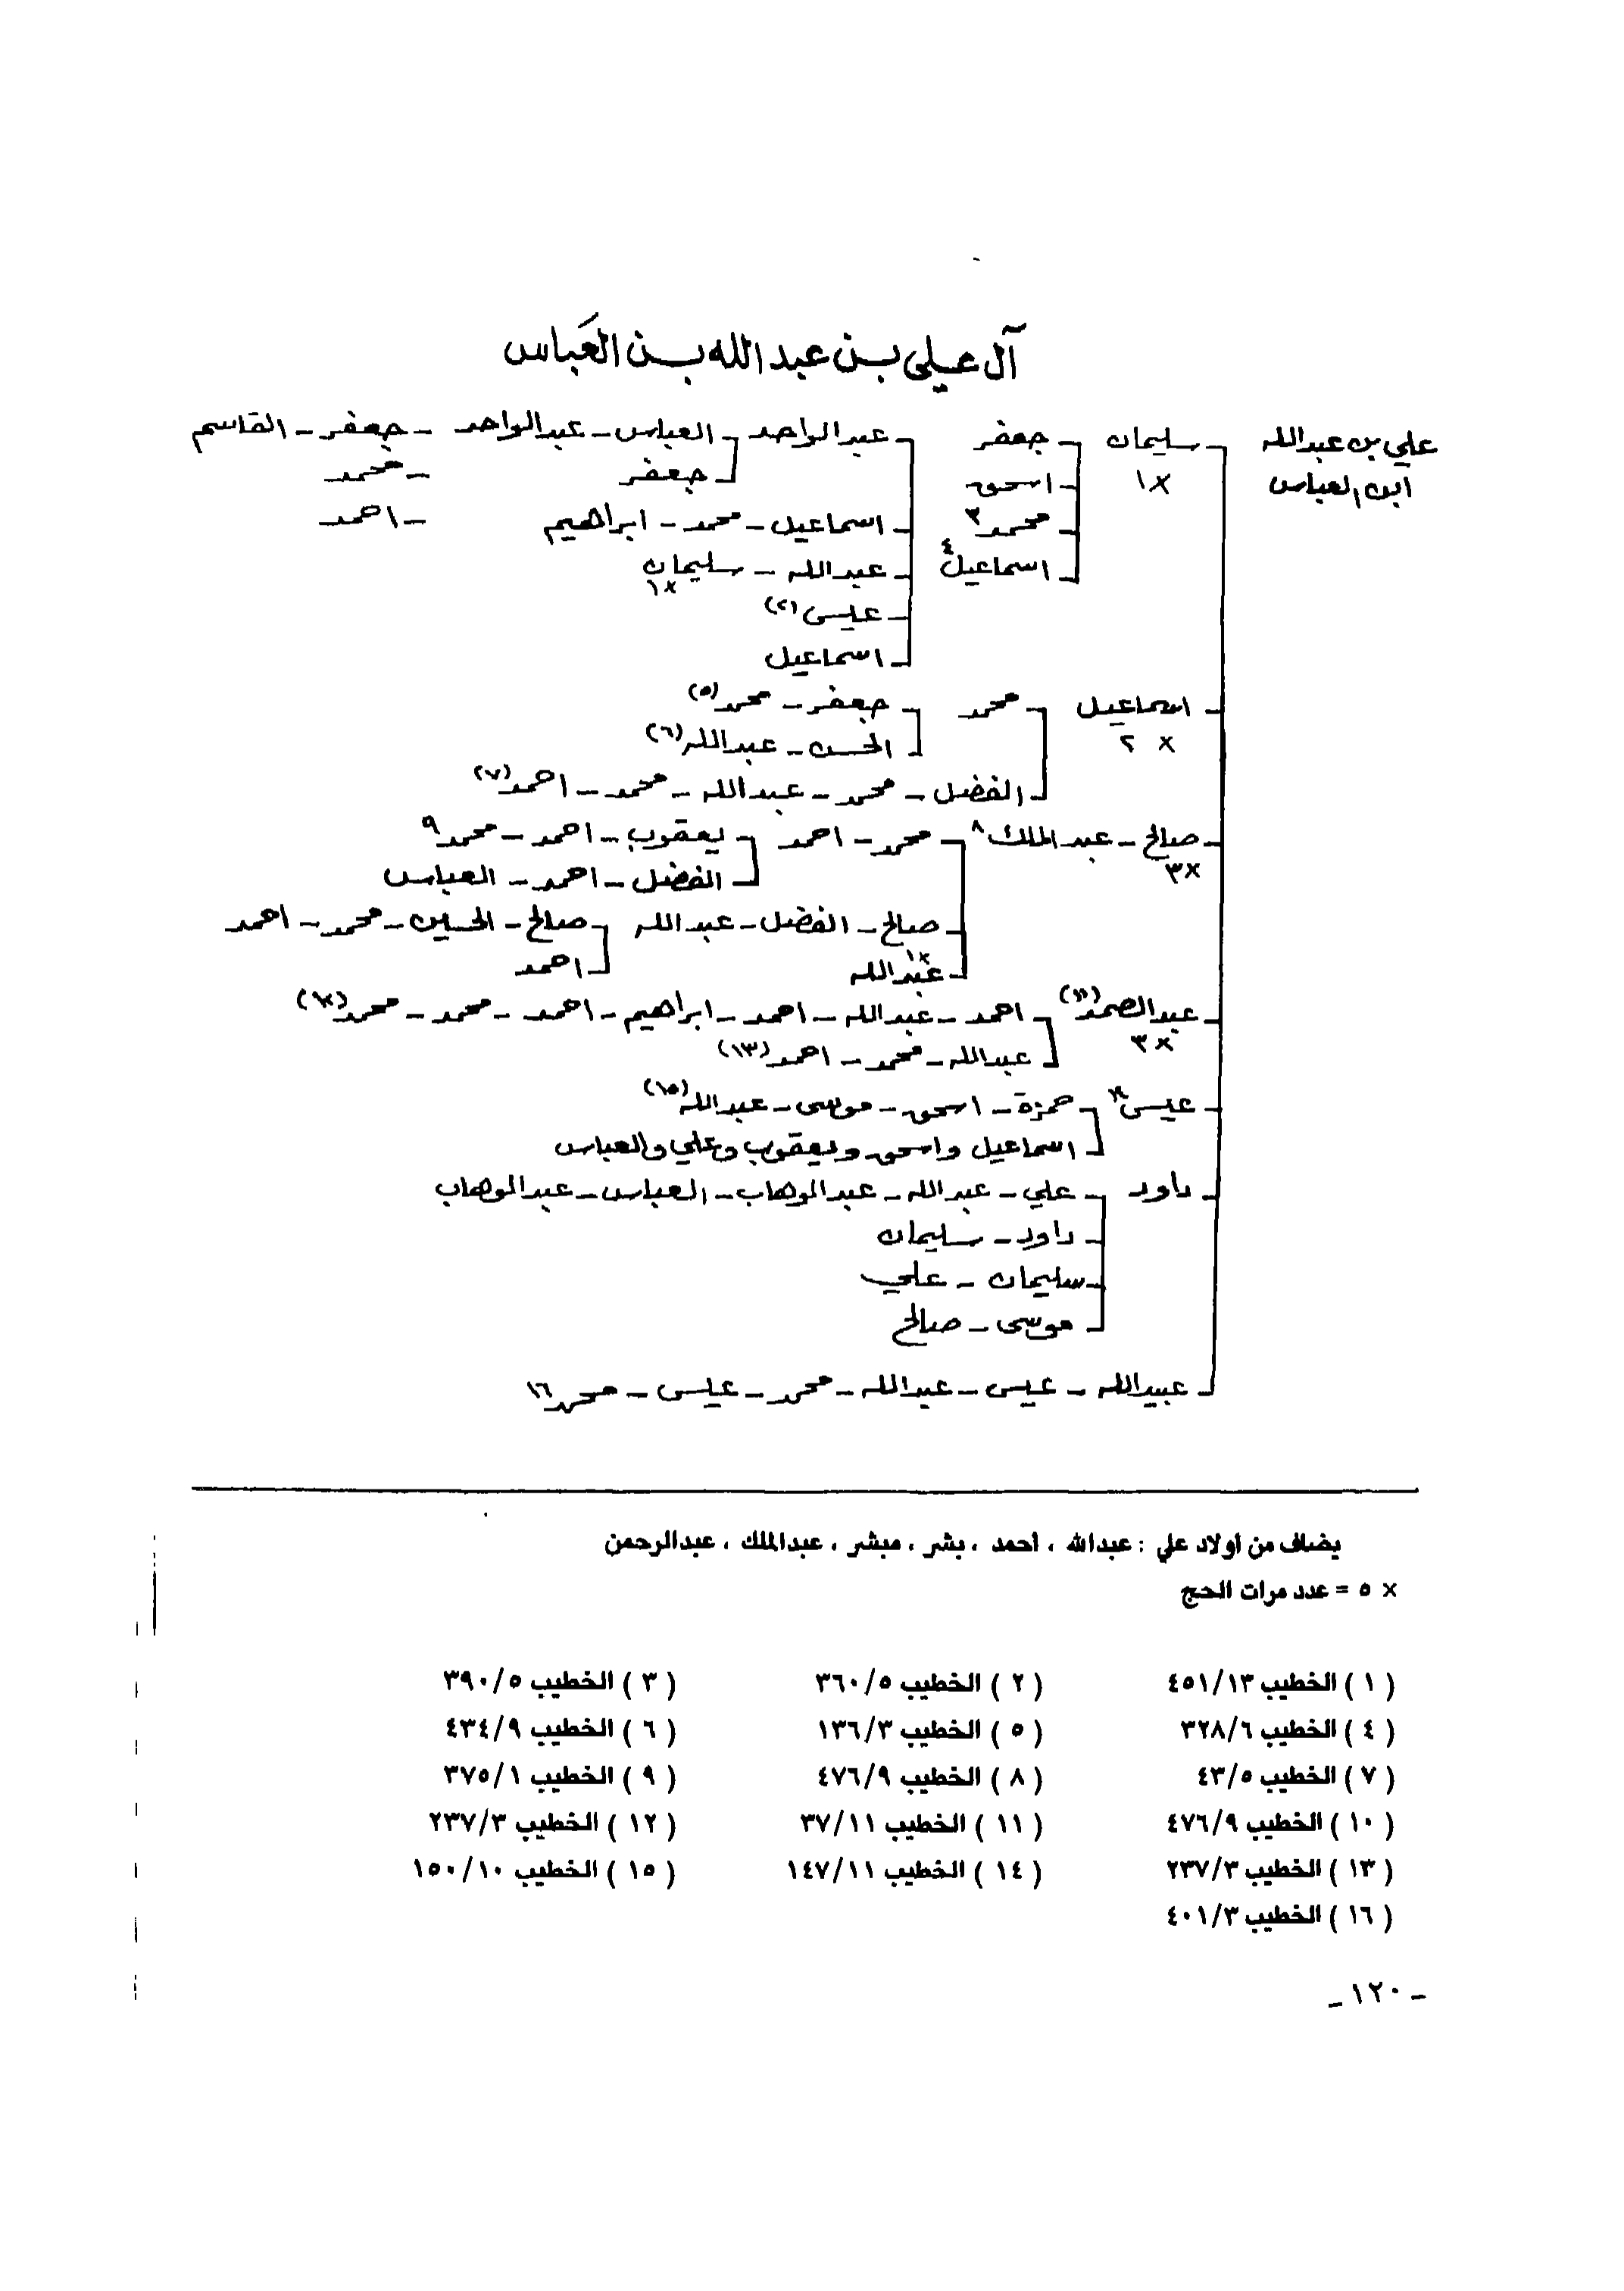 آل علي بن عبدالله بن العَباس
علي بن عبدالله - سليمان - جعفر - عبدالواحد - العباس - عبدالواحد - جعفر - القاسم
ابن العباس ×١ - اسحق - جعفر - محمد
- محمد ٣ - اسماعيل - محمد - ابراهيم - احمد
- اسماعيل ٤ - عبدالله - سليمان
×١
- عيسى (٢)
- اسماعيل
- اسماعيل - محمد - جعفر - محمد (٥)
× ٢ - الحسن - عبدالله (٦)
- الفضل - محمد - عبدالله - محمد - احمد (٧)
- صالح - عبدالملك ٨ - محمد - احمد - يعقوب - احمد - محمد ٩
×٣ - الفضل - احمد - العباس
- صالح - الفضل - عبدالله - صالح - الحسين - محمد - احمد
- عبدالله - احمد
- عبدالصمد (١١) - احمد - عبدالله - احمد - ابراهيم - احمد - محمد - محمد (١٢)
×٣ - عبدالله - محمد - احمد (١٣)
- عيسى - حمزة - اسحق - موسى - عبدالله (١٥)
- اسماعيل واسحق ويعقوب وعلي والعباس
- داود - علي - عبدالله - عبدالوهاب - العباس - عبدالوهاب
- داود - سليمان
- سليمان - علي
- موسى - صالح
- عبيدالله - عيسى - عبدالله - محمد - عيسى - محمد ١٦
يضاف من اولاد علي : عبدالله ، احمد ، بشر ، مبشر ، عبدالملك ، عبدالرحمن
× ٥ = عدد مرات الحج
( ١ ) الخطيب ٤٥١/١٣ ( ٢ ) الخطيب ٣٦٠/٥ ( ٣ ) الخطيب ٣٩٠/٥
( ٤ ) الخطيب ٣٢٨/٦ ( ٥ ) الخطيب ١٣٦/٣ ( ٦ ) الخطيب ٤٣٤/٩
( ٧ ) الخطيب ٤٣/٥ ( ٨ ) الخطيب ٤٧٦/٩ ( ٩ ) الخطيب ٣٧٥/١
( ١٠ ) الخطيب ٤٧٦/٩ ( ١١ ) الخطيب ٣٧/١١ ( ١٢ ) الخطيب ٢٣٧/٣
( ١٣ ) الخطيب ٢٣٧/٣ ( ١٤ ) الخطيب ١٤٧/١١ ( ١٥ ) الخطيب ١٥٠/١٠
( ١٦ ) الخطيب ٤٠١/٣
- ١٢٠ -